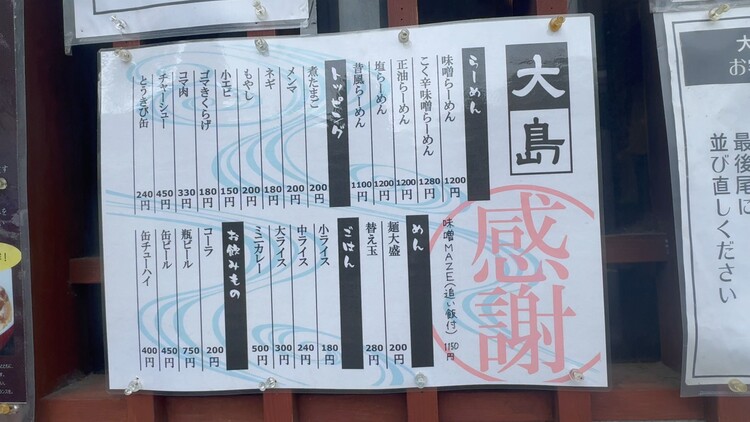 大島
らーめん
味噌らーめん 1200円
こく辛味噌らーめん 1280円
正油らーめん 1200円
塩らーめん 1200円
昔風らーめん 1100円
トッピング
煮たまご 200円
メンマ 200円
ネギ 180円
もやし 200円
小エビ 150円
ゴマきくらげ 180円
コマ肉 330円
チャーシュー 450円
とうきび缶 240円
感謝
味噌MAZE(追い飯付) 1150円
めん
麺大盛 200円
替え玉 280円
ごはん
小ライス 180円
中ライス 240円
大ライス 300円
ミニカレー 500円
お飲みもの
コーラ 200円
瓶ビール 750円
缶ビール 450円
缶チューハイ 400円
最後尾に
並び直しください